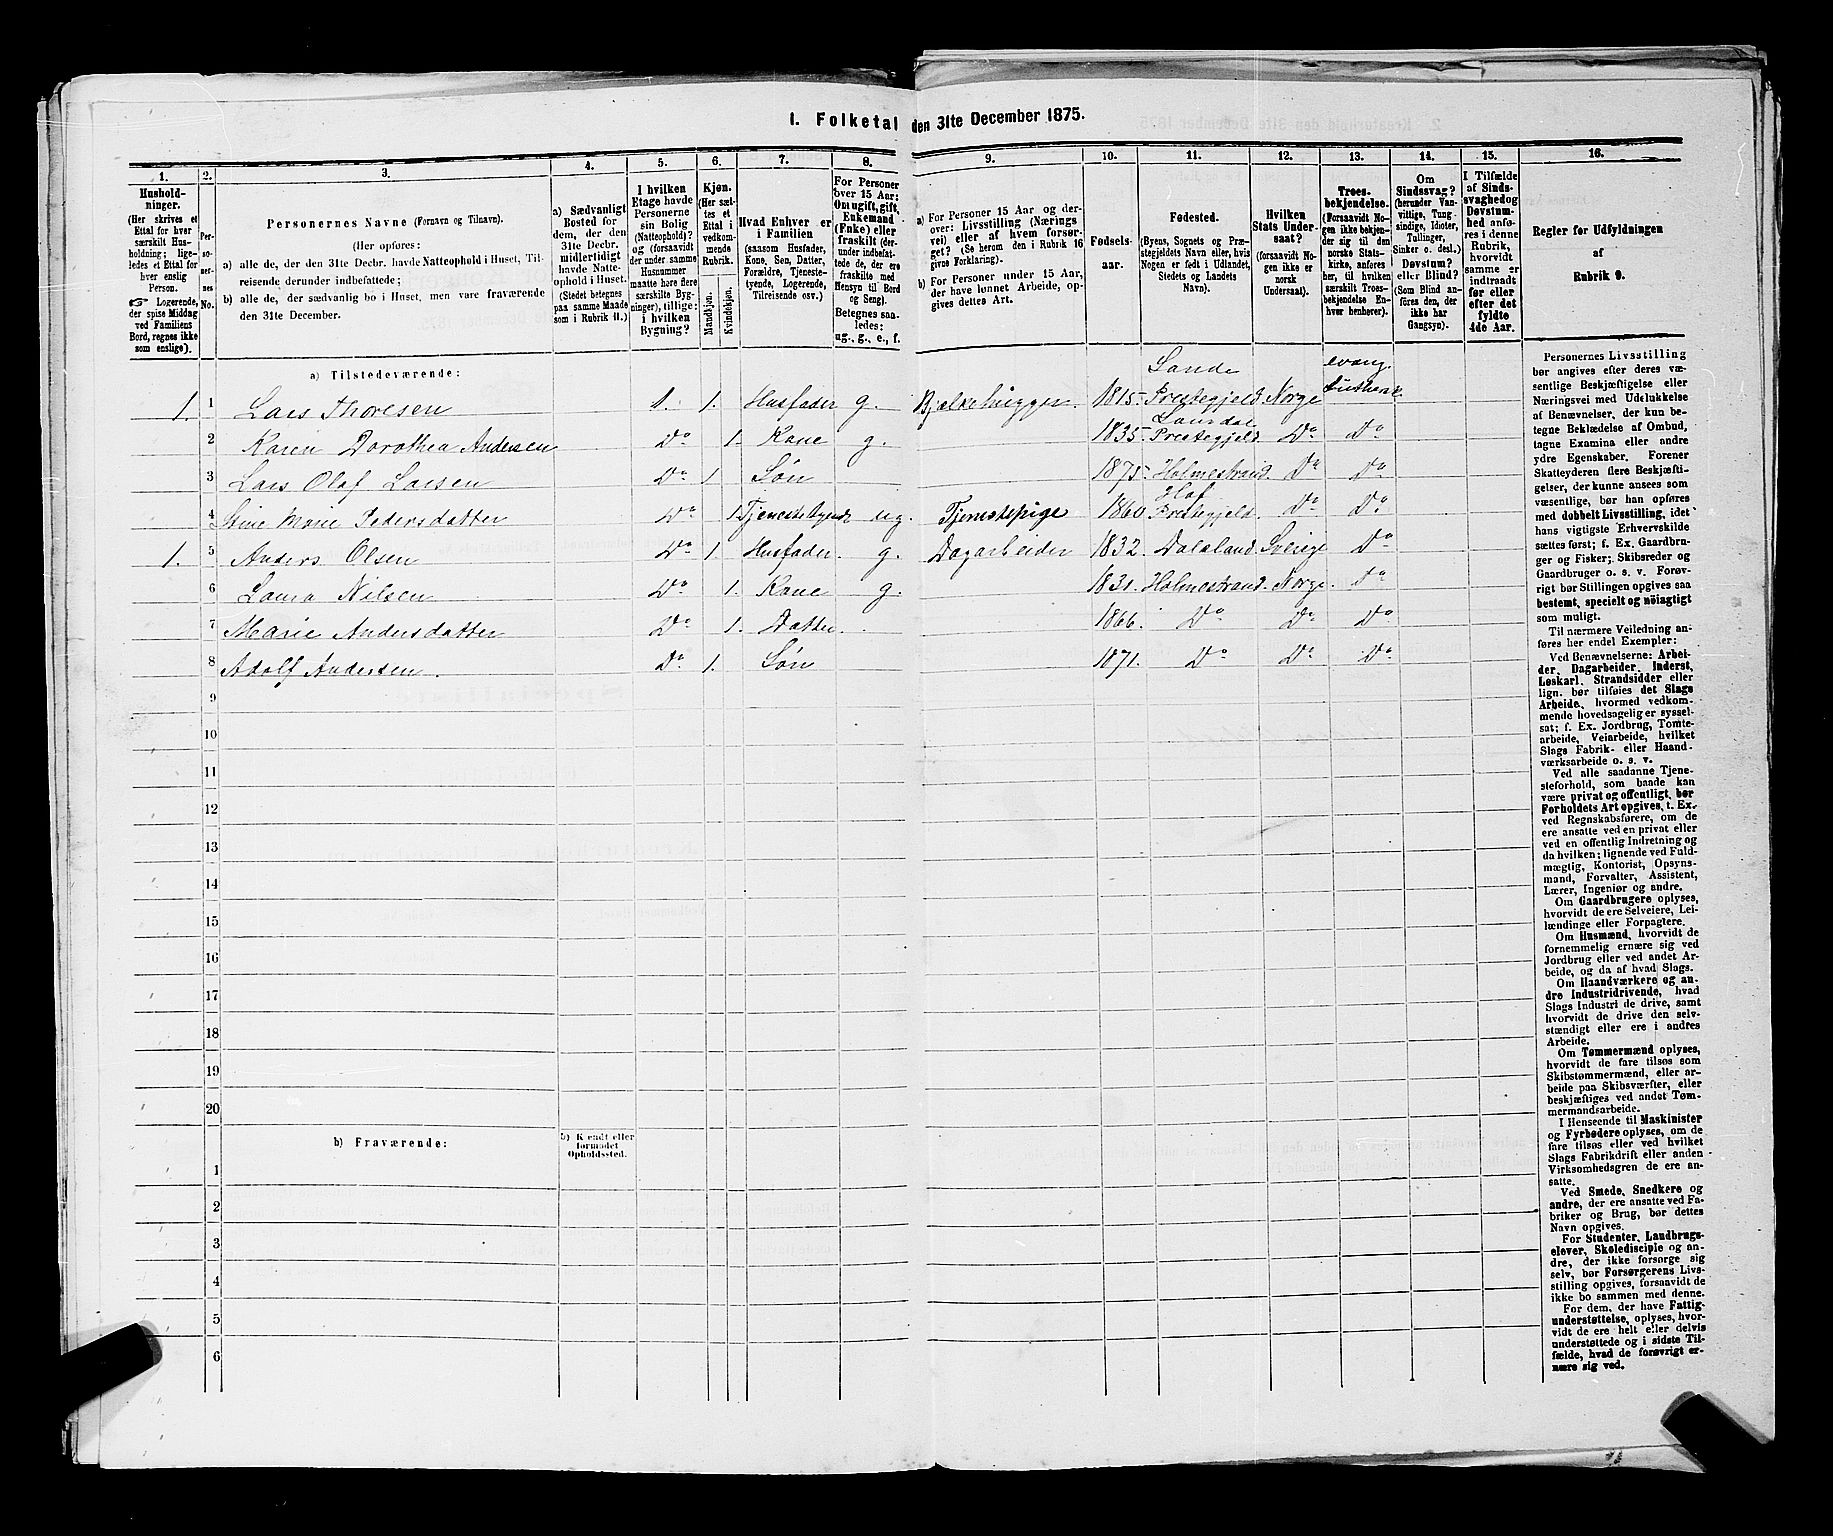 1. Folketal den 31te December 1875.
1. 2. 3. 4. 5. 6. 7. 8. 9. 10. 11. 12. 13. 14. 15. 16.
Hushold-
ninger.
(Her skrives et
Ettal for hver
særskilt Hus-
holdning; lige-
ledes et Ettal for
hver enslig
Person.
☞ Logerende,
der spise Middag
ved Familiens
Bord, regnes ikke
som enslige).
Per-
so-
ner-
nes
No.
Personernes Navne (Fornavn og Tilnavn).
(Her opføres:
a) alle de, der den 31te Decbr. havde Natteophold i Huset, Til-
reisende derunder indbefattede;
b) alle de, der sædvanlig bo i Huset, men vare fraværende
den 31te December.
a) Sædvanligt
Bosted for
dem, der den
31te Decbr.
midlertidigt
havde Natte-
ophold i Huset.
(Stedet betegnes
paa samme Maade
som i Rubrik 11.)
I hvilken
Etage havde
Personerne
sin Bolig
(Natteophold)?
og (forsaavidt
der under samme
Husnummer
maatte høre flere
særskilte Byg-
ninger), tillige:
i hvilken
Bygning?
Kjøn.
(Her sæt-
tes et
Ettal i
vedkom-
mende
Rubrik.
Mandkjøn.
Kvindekjøn.
Hvad Enhver er
i Familien
(saasom Husfader,
Kone, Søn, Datter,
Forældre, Tjeneste-
tyende, Logerende,
Tilreisende osv.)
For Personer
over 15 Aar:
Om ugift, gift,
Enkemand
(Enke) eller
fraskilt (der-
under indbefat-
tede de, der ere
fraskilte med
Hensyn til Bord
og Seng).
Betegnes saa-
ledes:
ug., g., e., f.
a) For Personer 15 Aar og der-
over: Livsstilling (Nærings
vei) eller af hvem forsør-
get? (Se herom den i Rubrik 16
givne Forklaring).
b) For Personer under 15 Aar,
der have lønnet Arbeide, op-
gives dettes Art.
Fødsels-
aar.
Fødested.
(Byens, Sognets og Præ-
stegjeldets Navn eller, hvis
Nogen er født i Udlandet,
Stedets og Landets
Navn).
Hvilken
Stats Under-
saat?
(forsaavidt No-
gen ikke er
norsk
Undersaat).
Troes-
bekjendelse.
(Forsaavidt No-
gen ikke bekjen-
der sig til den
norske Stats-
kirke, anføres
her, til hvilken
særskilt Troes-
bekjendelse En-
hver henhører).
Om
Sindssvag?
(herunder Van-
vittige, Tung-
sindige, Idioter,
Tullinger,
Sinker o. desl.)
Døvstum?
eller Blind?
(Som Blind an-
føres den, der
ikke har
Gangsyn).
I Tilfælde
af Sinds-
svaghed og
Døvstum-
hed anfø-
res i denne
Rubrik,
hvorvidt
samme er
indtraadt
før eller
efter det
fyldte
4de Aar.
Regler for Udfyldningen
af
Rubrik 9.
a) Tilstedeværende:
1. 1 Lars Thoresen 1. 1. Husfader g. Bjælkehugger. 1815. Sande Prestegjeld Norge evang. luthersk
2 Karen Dorothea Andersen Do 1. Kone g. 1835. Prestegjeld Do Do
3 Lars Olaf Larsen Do 1 Søn 1875 Holmestrand. Do Do
4 Stine Marie Pedersdatter Do 1 Tjenestetyende ug. Tjenestepige 1860 Hof Prestegjeld. Do Do
1. 5 Anders Olsen Do 1. Husfader g. Dagarbeider 1832. Dalsland. Sverige Do
6 Laura Nilsen Do 1. Kone g. 1831. Holmestrand. Norge. Do
7 Marie Andersdatter Do 1. Datter. 1866. Do Do Do
8 Adolf Andersen. Do 1. Søn 1871. Do Do Do
9
10
11
12
13
14
15
16
17
18
19
20
b) Fraværende:
b) Kjendt eller
formodet
Opholdssted.
1
2
3
4
5
6
Personernes Livsstilling
bør angives efter deres væ-
sentlige Beskjæftigelse eller
Næringsvei med Udelukkelse
af Benævnelser, der kun be-
tegne Beklædelse af Ombud,
tagne Examina eller andre
ydre Egenskaber. Forener
Skatteyderen flere Beskjæfti-
gelser, der kunne ansees som
væsentlige, bør han opføres
med dobbelt Livsstilling, idet
hans vigtigste Erhvervskilde
sættes først; f. Ex. Gaardbru-
ger og Fisker; Skibsreder og
Gaardbruger o. s. v. Forøv-
rigt bør Stillingen opgives saa
bestemt, specielt og nöiagtigt
som muligt.
Til nærmere Veiledning an-
føres her endel Exempler:
Ved Benævnelserne: Arbei-
der, Dagarbeider, Inderst,
Løskarl, Strandsidder eller
lign. bør tilføies det Slags
Arbeide, hvormed vedkom-
mende hovedsagelig er syssel-
sat; f. Ex. Jordbrug, Tomte-
arbeide, Veiarbeide, hvilket
Slags Fabrik- eller Haand-
værksarbeide o. s. v.
Ved alle saadanne Tjene-
steforhold, som baade kan
være privat og offentligt, bør
Forholdets Art opgives, t. Ex.
ved Regnskabsførere, om de
ere ansatte ved en privat eller
ved en offentlig Indretning og
da hvilken; lignende ved Fuld-
mægtig, Kontorist, Opsyns-
mand, Forvalter, Assistent,
Lærer, Ingeniør og andre.
Om Gaardbrugere oplyses,
hvorvidt de ere Selveiere, Lei-
lændinge eller Forpagtere.
Om Husmænd, hvorvidt de
fornemmelig ernære sig ved
Jordbrug eller ved andet Ar-
beide, og da af hvad Slags.
Om Haandværkere og an-
dre Industridrivende, hvad
Slags Industri de drive, samt
hvorvidt de drive den selv-
stændigt eller ere i andres
Arbeide.
Om Tømmermænd oplyses,
hvorvidt de fare tilsøs som
Skibstømmermænd, eller ar-
beide paa Skibsværfter, eller
beskjæftiges ved andet Tøm-
mermandsarbeide.
I Henseende til Maskinister
og Fyrbødere oplyses, om de
fare tilsøs eller ved hvilket
Slags Fabrikdrift eller anden
Virksomhedsgren de ere an-
satte.
Ved Smede, Snedkere og
andre, der ere ansatte ved Fa-
briker og Brug, bør dettes
Navn opgives.
For Studenter, Landbrugs-
elever, Skoledisciple og an-
dre, der ikke forsørge sig
selv, bør Forsørgerens Livs-
stilling opgives, forsaavidt de
ikke bo sammen med denne.
For dem, der have Fattig-
understøttelse, oplyses, hvor-
vidt de ere helt eller delvis
understøttede og i sidste Til-
fælde, hvad de forøvrigt er-
nære sig ved.